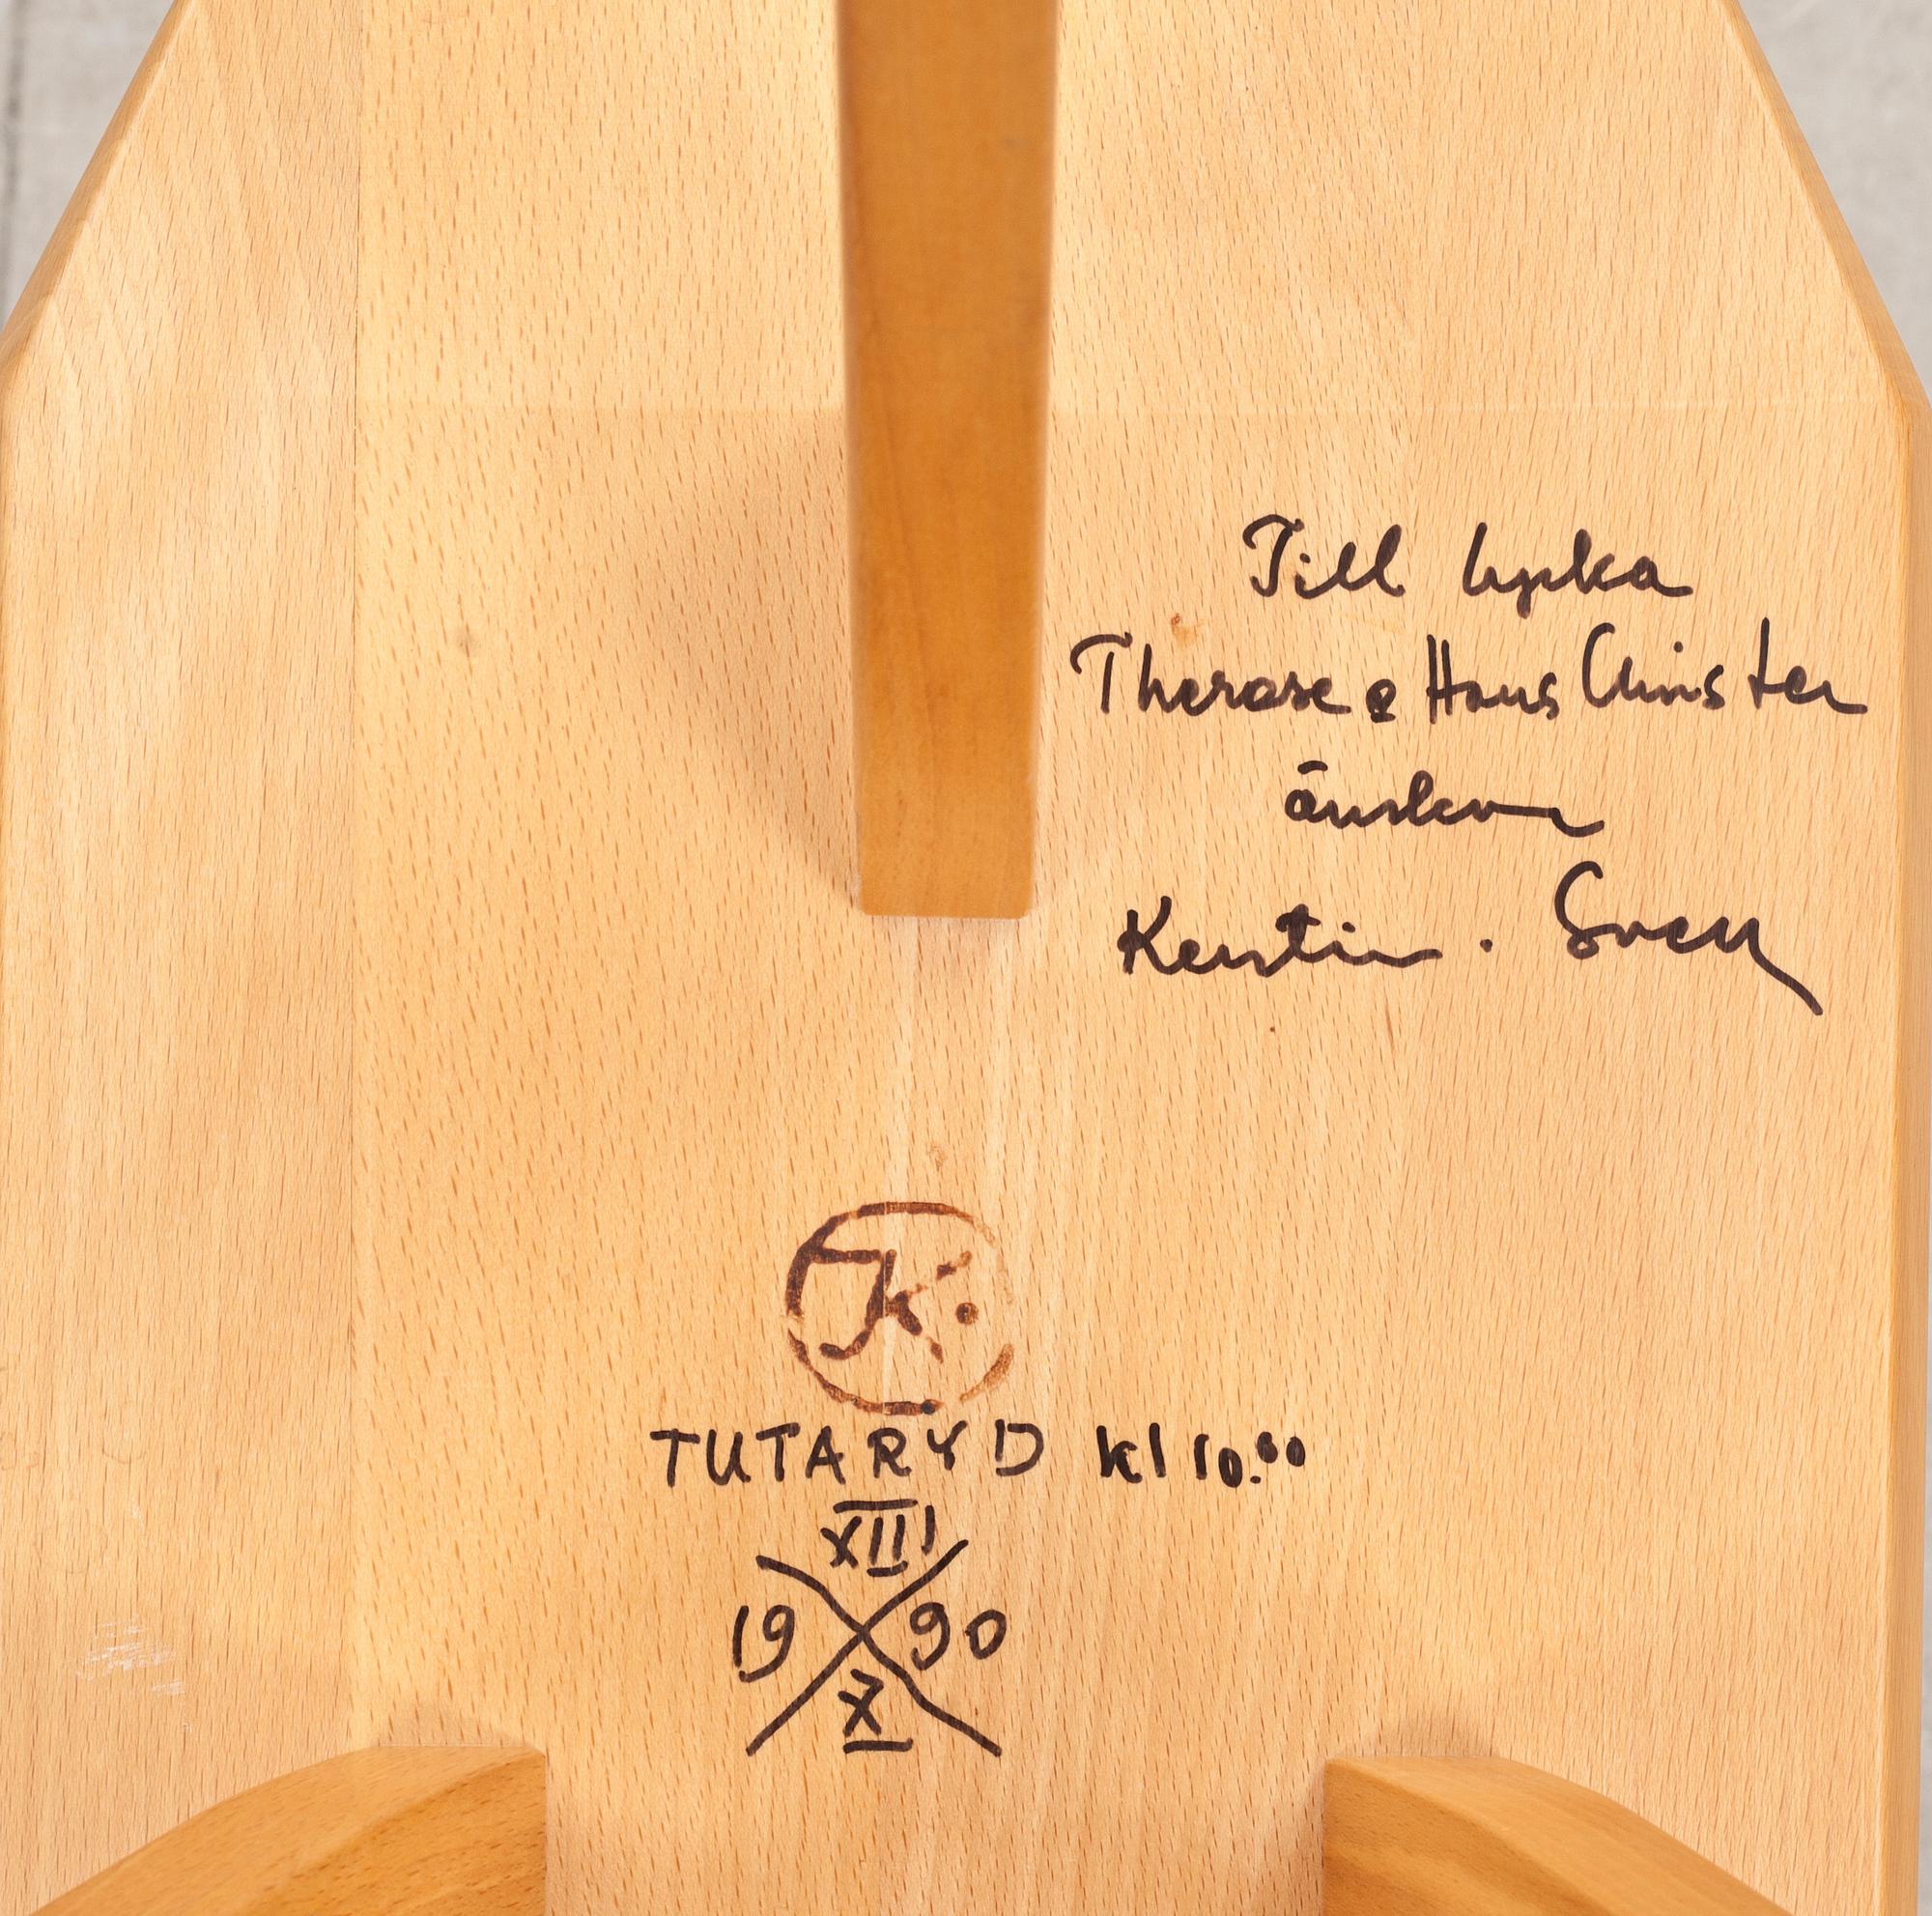 Till lycka
Therese & Hans Christer
önskar
Kerstin . Sven
JK.
TUTARYD kl 10.00
XIII
19 90
X